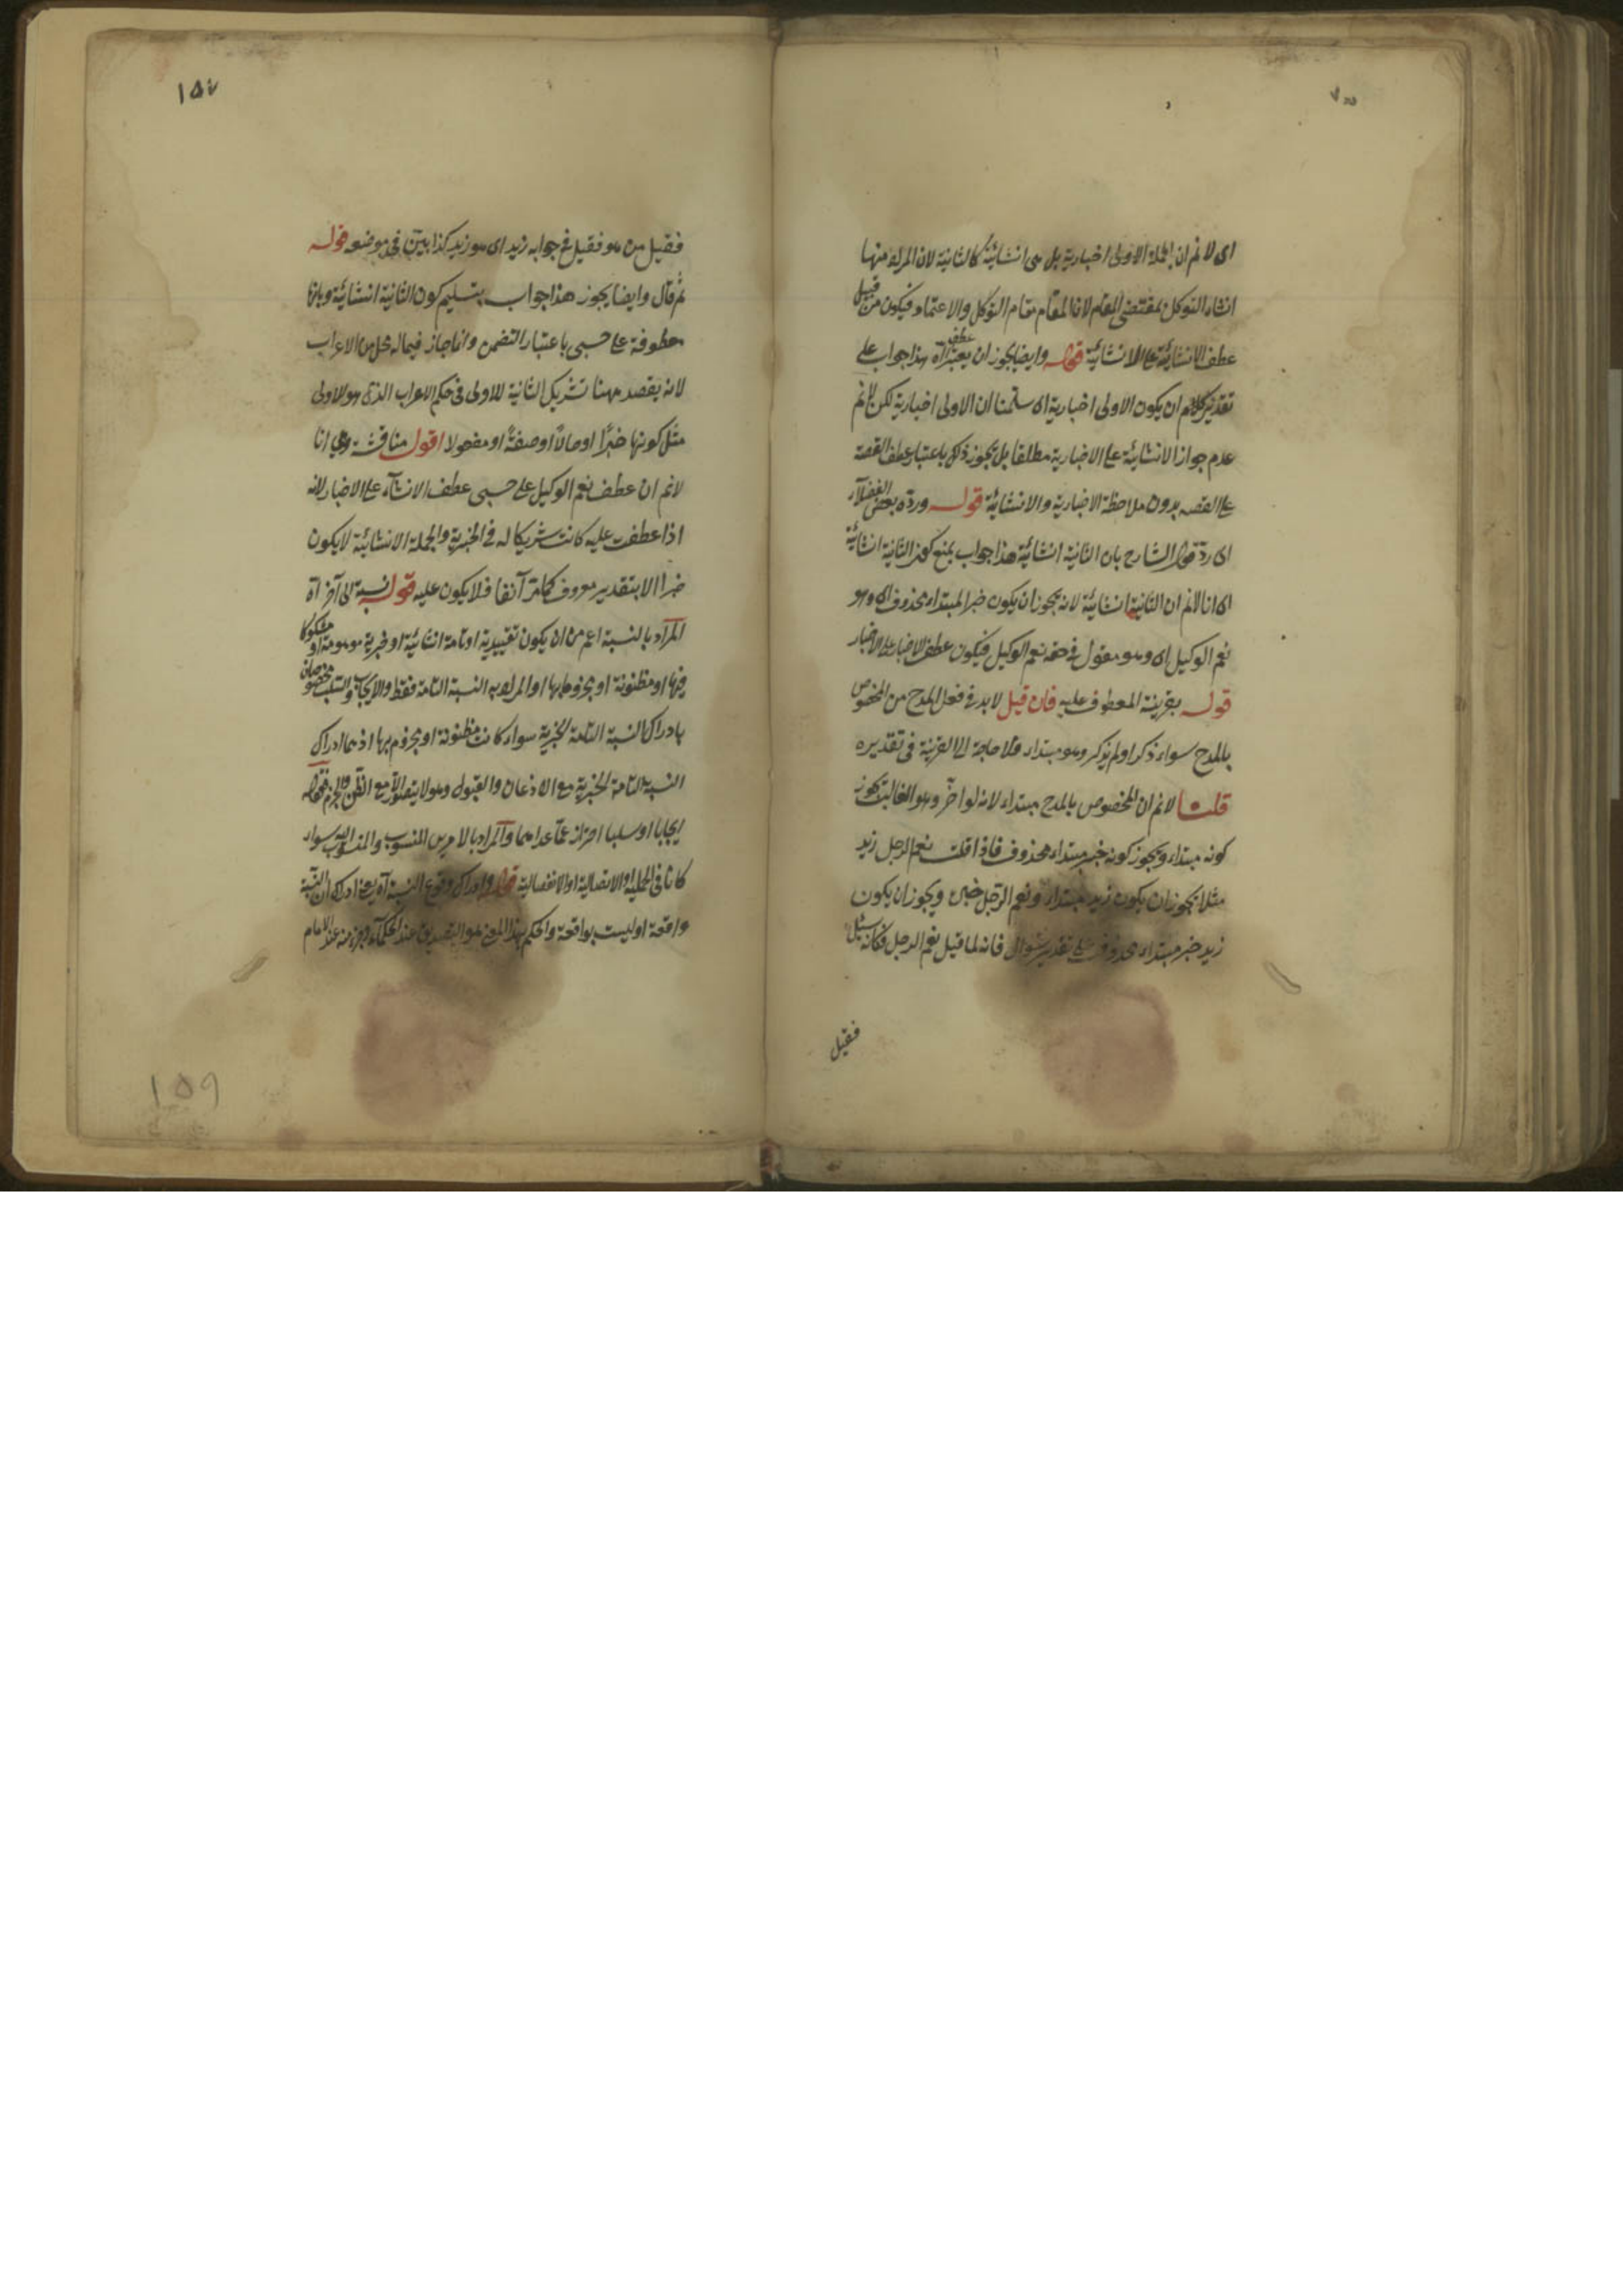 اى لا نم ان الجملة الاولى اخبارية بل هى انشائية كالثانية لان المراد منها
انشاء التوكل بمقتضى المقام لان المقام مقام التوكل والاعتماد فيكون من قبيل
عطف الانشائية على الانشائية قوله وايضا يجوز ان يعتبر عطف آه هذا جواب على
تقدير ان يكون الاولى اخبارية اى سلمنا ان الاولى اخبارية لكن لا نم
عدم جواز الانشائية على الاخبارية مطلقا بل يجوز ذلك باعتبار عطف القصة
على القصه بدون ملاحظة الاخبارية والانشائية قوله ورده بعض الفضلاء
اى رد قول الشارح بان الثانية انشائية هذا جواب بمنع كون الثانية انشائية
اى انا لا نم ان الثانية انشائية لانه يجوز ان يكون خبر المبتداء محذوف اى وهو
نعم الوكيل اى وهو مقول فى حقه نعم الوكيل فيكون عطف الاخبار على الاخبار
قوله بقرينة المعطوف عليه فان قيل لا بد فى فعل المدح من المخصوص
بالمدح سواء ذكر اولم يذكر وهو مبتداء فلا حاجة الى القرينة فى تقديره
قلنا لا نم ان المخصوص بالمدح مبتداء لانه لو اخر وهو الغالب يكون
كونه مبتداء ويجوز كونه خبر مبتداء محذوف فاذا قلت نعم الرجل زيد
مثلا يجوز ان يكون زيد مبتداء ونعم الرجل خبره ويجوز ان يكون
زيد خبر مبتداء محذوف على تقدير سؤال فانه لما قيل نعم الرجل فكانه سئل
فقيل
١٥٧
فقيل من هو فقيل فى جوابه زيد اى هو زيد كذا بين فى موضعه قوله
ثم قال وايضا يجوز هذا جواب بتسليم كون الثانية انشائية وبانها
معطوفة على حسبى باعتبار التضمن وانما جاز فيما له محل من الاعراب
لانه يقصد ههنا تشريك الثانية للاولى فى حكم الاعراب الذى هو للاولى
مثل كونها خبرًا او حالاً او صفةً او مفعولا اقول مناقشة وهى انا
لا نم ان عطف نعم الوكيل على حسبى عطف الانشاء على الاخبار لانه
اذا عطفت عليه كانت شريكا له فى الخبرية والجملة الانشائية لا يكون
خبرا الا بتقدير معروف كما مر آنفا فلا يكون عليه قوله نسبة الى آخر آه
المراد بالنسبة اعم من ان يكون تقييدية او تامة انشائية او خبرية موهومة او مشكوكا
فيها او مظنونة او مجزوما بها او المراد به النسبة التامة فقط والايجاب والسلب مخصوصان
بادراك النسبة التامة الخبرية سواء كانت مظنونة او مجزوم بها اذ هما ادراك
النسبة التامة الخبرية مع الاذعان والقبول وهو لا يتصور الا مع الظن والجزم فقوله
ايجابا او سلبا احتراز عما عداهما والمراد بالامرين المنسوب والمنسوب اليه سواء
كانا فى الحملية او الاتصالية او الانفصالية قوله وادراك وقوع النسبة آه يعنى ادراك ان النسبة
واقعة او ليست بواقعة والحكم بهذا المعنى هو التصديق عند الحكماء وجزء منه عند الامام
١٥٩